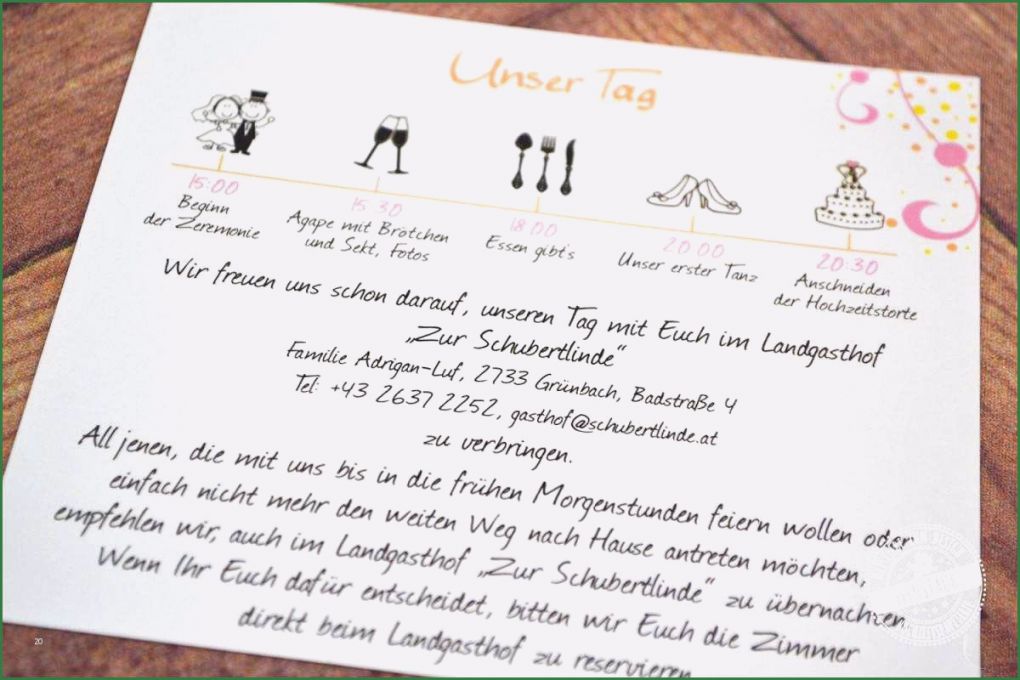 Unser Tag
15:00
Beginn
der Zeremonie
15:30
Agape mit Brötchen
und Sekt, Fotos
18:00
Essen gibt's
20:00
Unser erster Tanz
20:30
Anschneiden
der Hochzeitstorte
Wir freuen uns schon darauf, unseren Tag mit Euch im Landgasthof
„Zur Schubertlinde“
Familie Adrigan-Luf, 2733 Grünbach, Badstraße 4
Tel: +43 2637 2252, gasthof@schubertlinde.at
zu verbringen.
All jenen, die mit uns bis in die frühen Morgenstunden feiern wollen oder
einfach nicht mehr den weiten Weg nach Hause antreten möchten,
empfehlen wir, auch im Landgasthof „Zur Schubertlinde“ zu übernachten.
Wenn Ihr Euch dafür entscheidet, bitten wir Euch die Zimmer
direkt beim Landgasthof zu reservieren
20